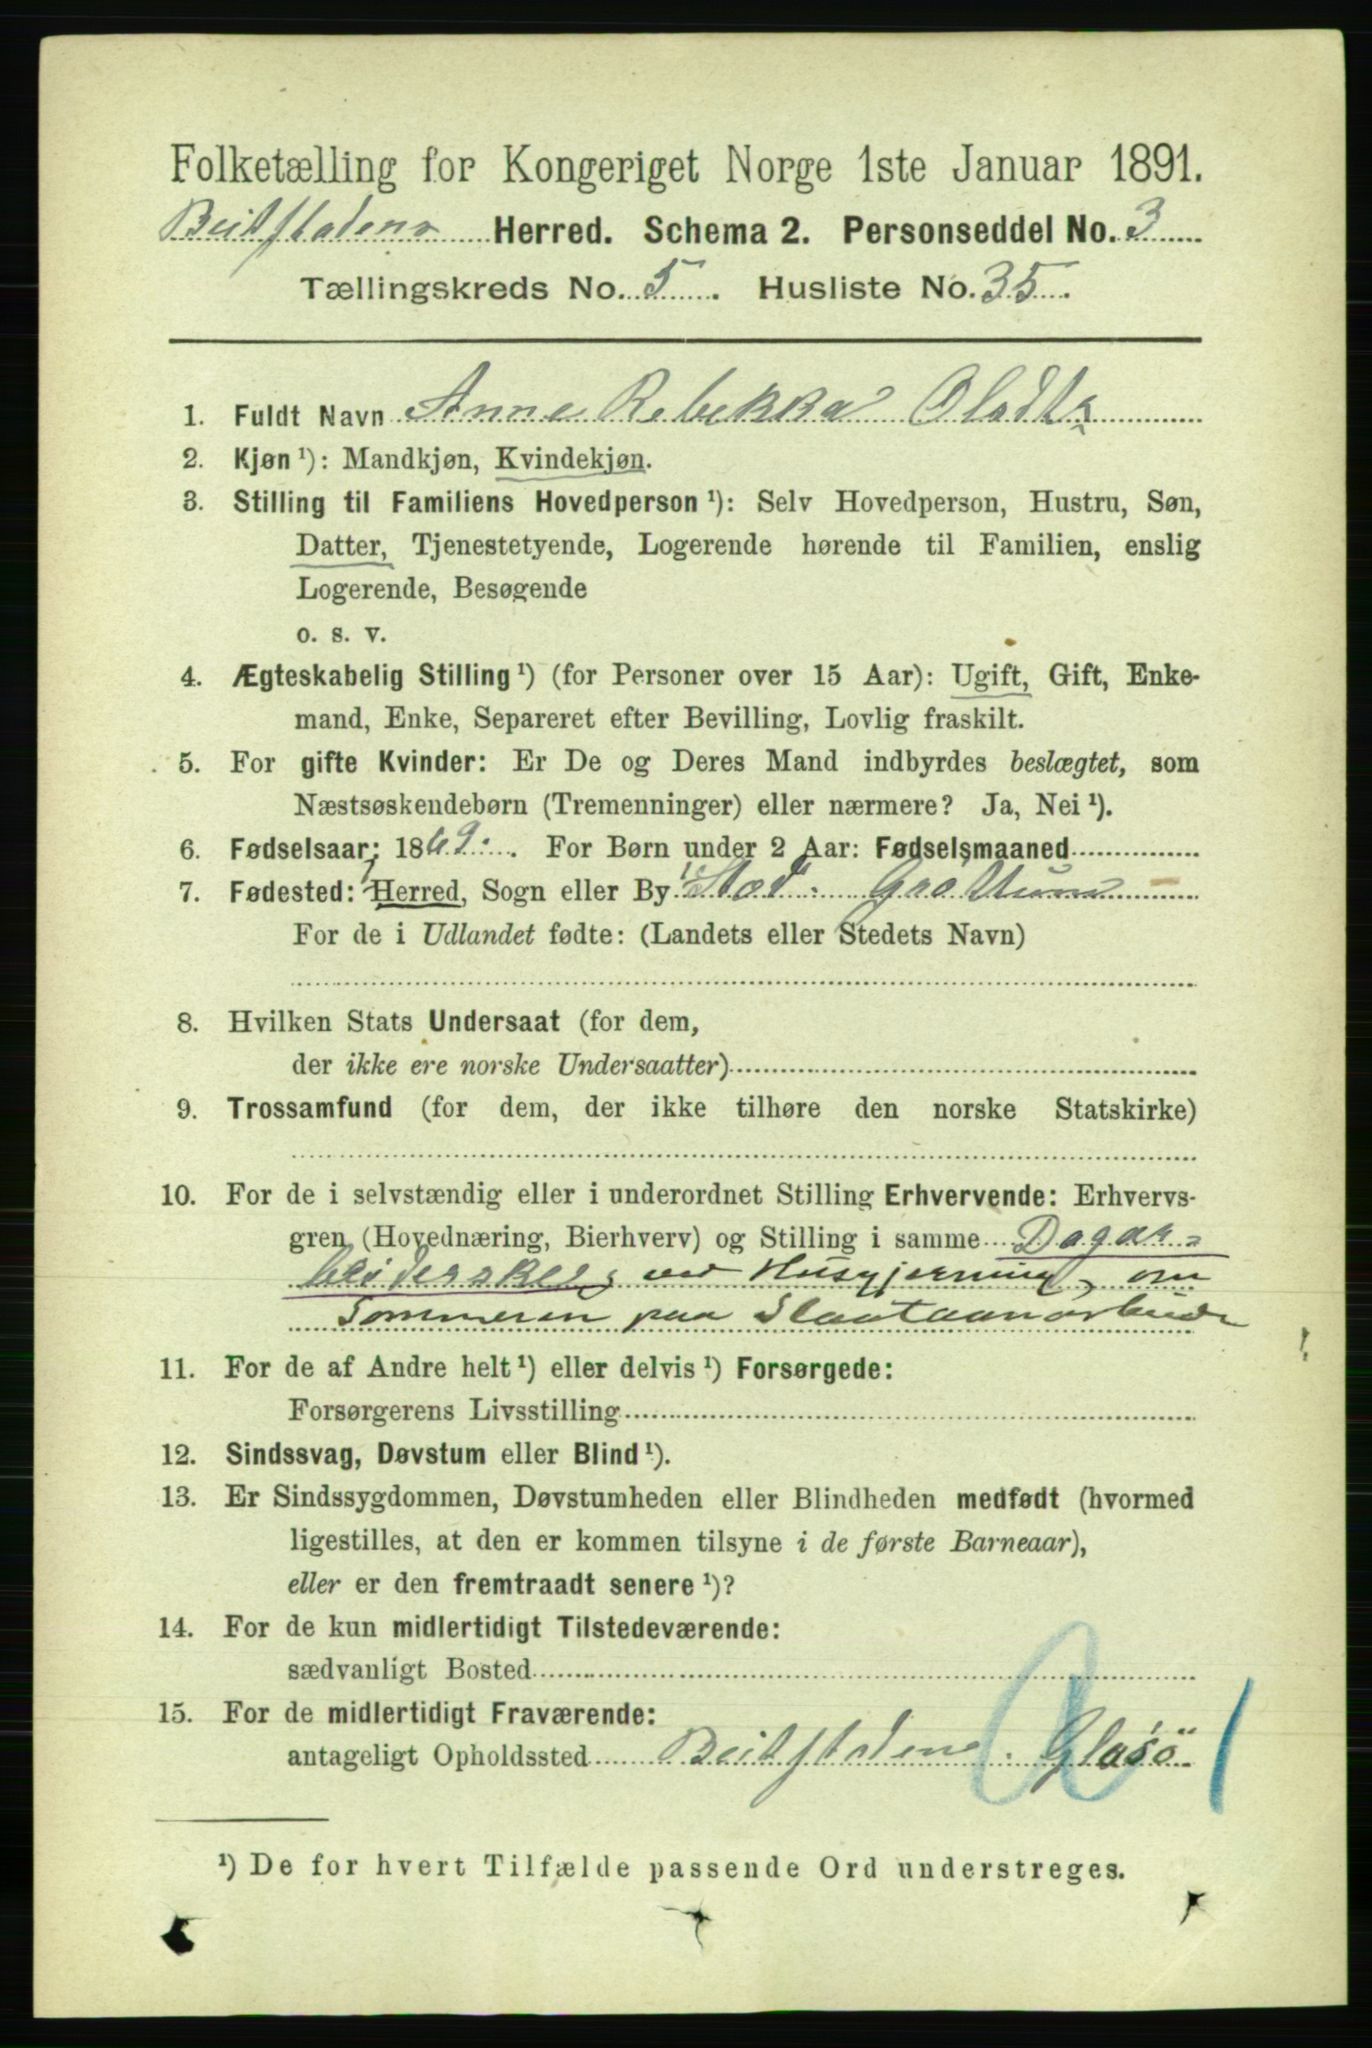 Folketælling for Kongeriget Norge 1ste Januar 1891.
Beitstadens Herred. Schema 2. Personseddel No. 3
Tællingskreds No. 5. Husliste No. 35.
1. Fuldt Navn Anne Rebekka Olsdtr
2. Kjøn¹): Mandkjøn, Kvindekjøn.
3. Stilling til Familiens Hovedperson¹): Selv Hovedperson, Hustru, Søn,
Datter, Tjenestetyende, Logerende hørende til Familien, enslig
Logerende, Besøgende
o. s. v.
4. Ægteskabelig Stilling¹) (for Personer over 15 Aar): Ugift, Gift, Enke-
mand, Enke, Separeret efter Bevilling, Lovlig fraskilt.
5. For gifte Kvinder: Er De og Deres Mand indbyrdes beslægtet, som
Næstsøskendebørn (Tremenninger) eller nærmere? Ja, Nei¹).
6. Fødselsaar: 1869. For Børn under 2 Aar: Fødselsmaaned
7. Fødested: Herred, Sogn eller By Stod.
For de i Udlandet fødte: (Landets eller Stedets Navn)
8. Hvilken Stats Undersaat (for dem,
der ikke ere norske Undersaatter)
9. Trossamfund (for dem, der ikke tilhøre den norske Statskirke)
10. For de i selvstændig eller i underordnet Stilling Erhvervende: Erhvervs-
gren (Hovednæring, Bierhverv) og Stilling i samme Dagar-
beiderske, ved Husgjerning, om
Sommeren paa Slaataanarbeide
11. For de af Andre helt¹) eller delvis¹) Forsørgede:
Forsørgerens Livsstilling
12. Sindssvag, Døvstum eller Blind¹).
13. Er Sindssygdommen, Døvstumheden eller Blindheden medfødt (hvormed
ligestilles, at den er kommen tilsyne i de første Barneaar),
eller er den fremtraadt senere¹)?
14. For de kun midlertidigt Tilstedeværende:
sædvanligt Bosted
15. For de midlertidigt Fraværende:
antageligt Opholdssted Beitstadens. Glösö
¹) De for hvert Tilfælde passende Ord understreges.